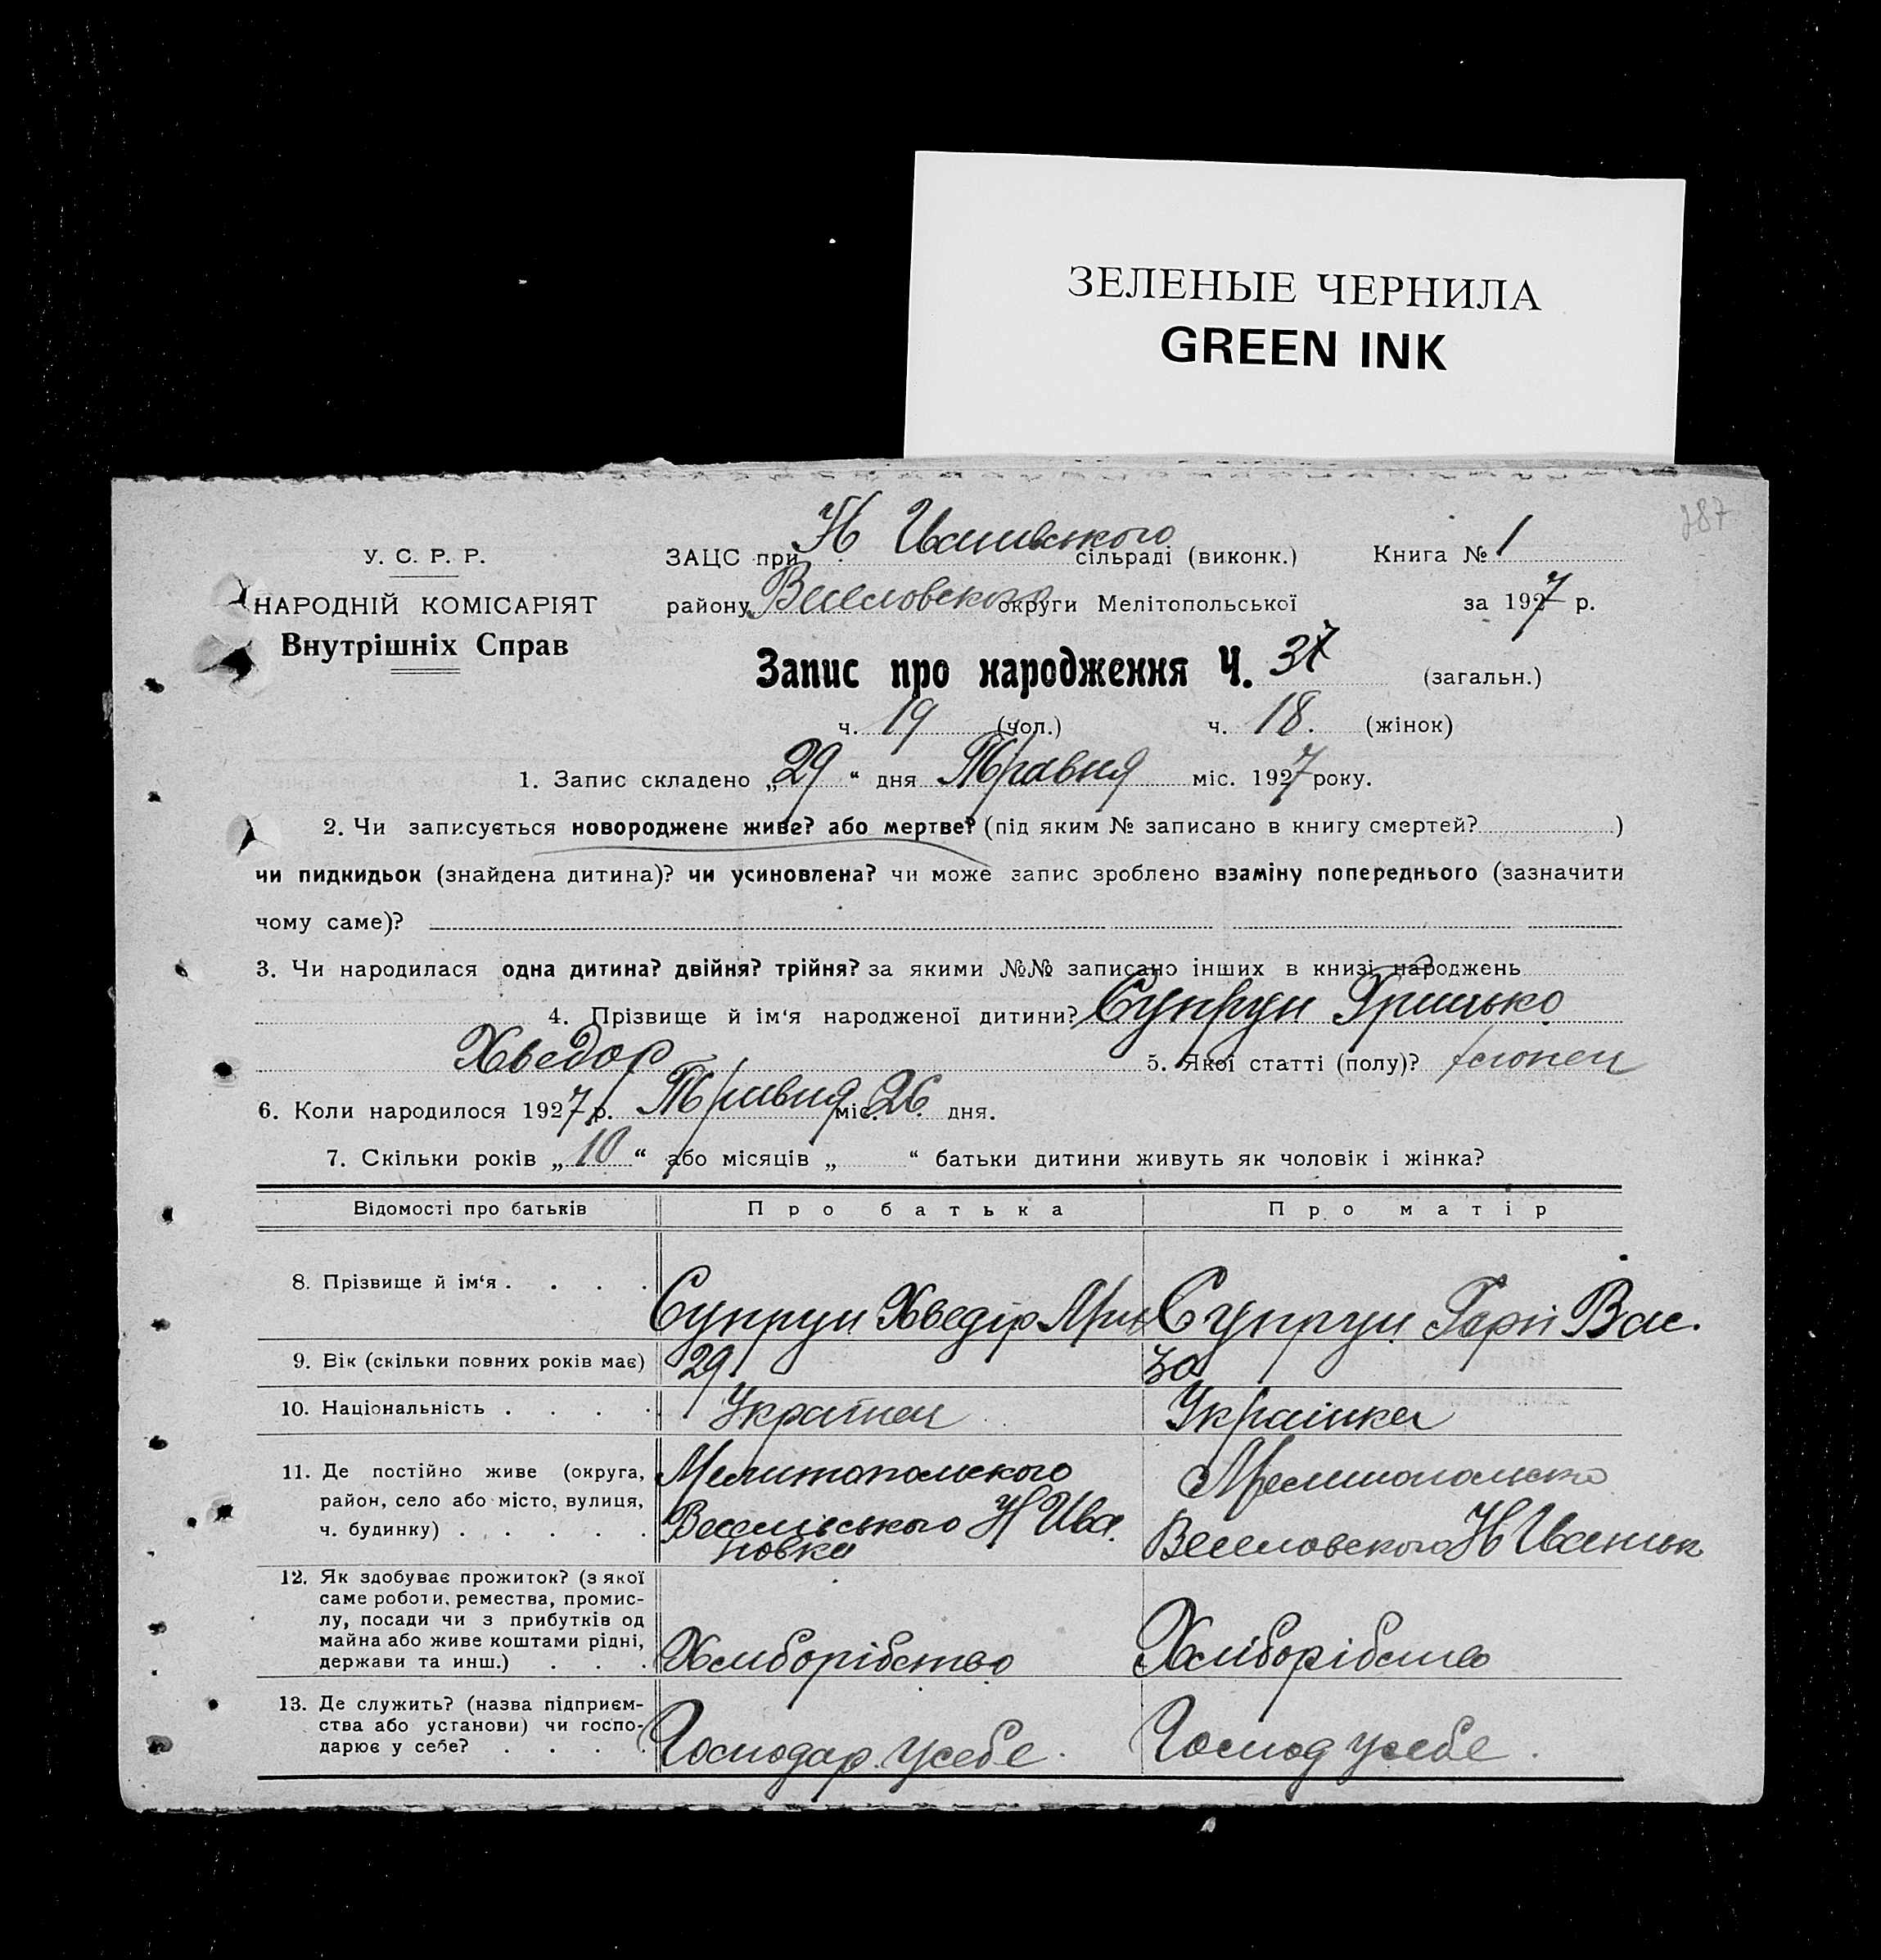 ЗЕЛЕНЫЕ ЧЕРНИЛА
GREEN INK
387
У. С. Р. Р.
НАРОДНІЙ КОМІСАРІЯТ
Внутрішніх Справ
ЗАЦС при Н Іванивського сільраді (виконк.) Книга № 1
району Веселовского округи Мелітопольської за 1927 р.
Запис про народження Ч. 37 (загальн.)
ч. 19 (чол.) ч. 18. (жінок)
1. Запис складено „29“ дня Травня міс. 1927 року.
2. Чи записується новороджене живе? або мертве? (під яким № записано в книгу смертей? )
чи пидкидьок (знайдена дитина)? чи усиновлена? чи може запис зроблено взаміну попереднього (зазначити
чому саме)?
3. Чи народилася одна дитина? двійня? трійня? за якими №№ записано інших в книзі народжень
4. Прізвище й ім‘я народженої дитини? Супрун Грицько
Хведор 5. Якої статті (полу)?
6. Коли народилося 1927 р. Травня міс. 26 дня.
7. Скільки років „10“ або місяців „ “ батьки дитини живуть як чоловік і жінка?
Відомості про батьків Про батька Про матір
8. Прізвище й ім‘я . . . . Супрун Хведір Супрун Вас.
9. Вік (скільки повних років має) 29 30
10. Національність . . . . Українец Українка
11. Де постійно живе (округа, район, село або місто, вулиця, ч. будинку) . . . . . Мелитопольского Веселівського Н Ива новка Веселовского Н
12. Як здобуває прожиток? (з якої саме роботи, ремества, промислу, посади чи з прибутків од майна або живе коштами рідні, держави та инш.) . . . Хлиборібство Хліборібство
13. Де служить? (назва підприємства або установи) чи господарює у себе? . . . . Господар. усебе. Господ усебе.